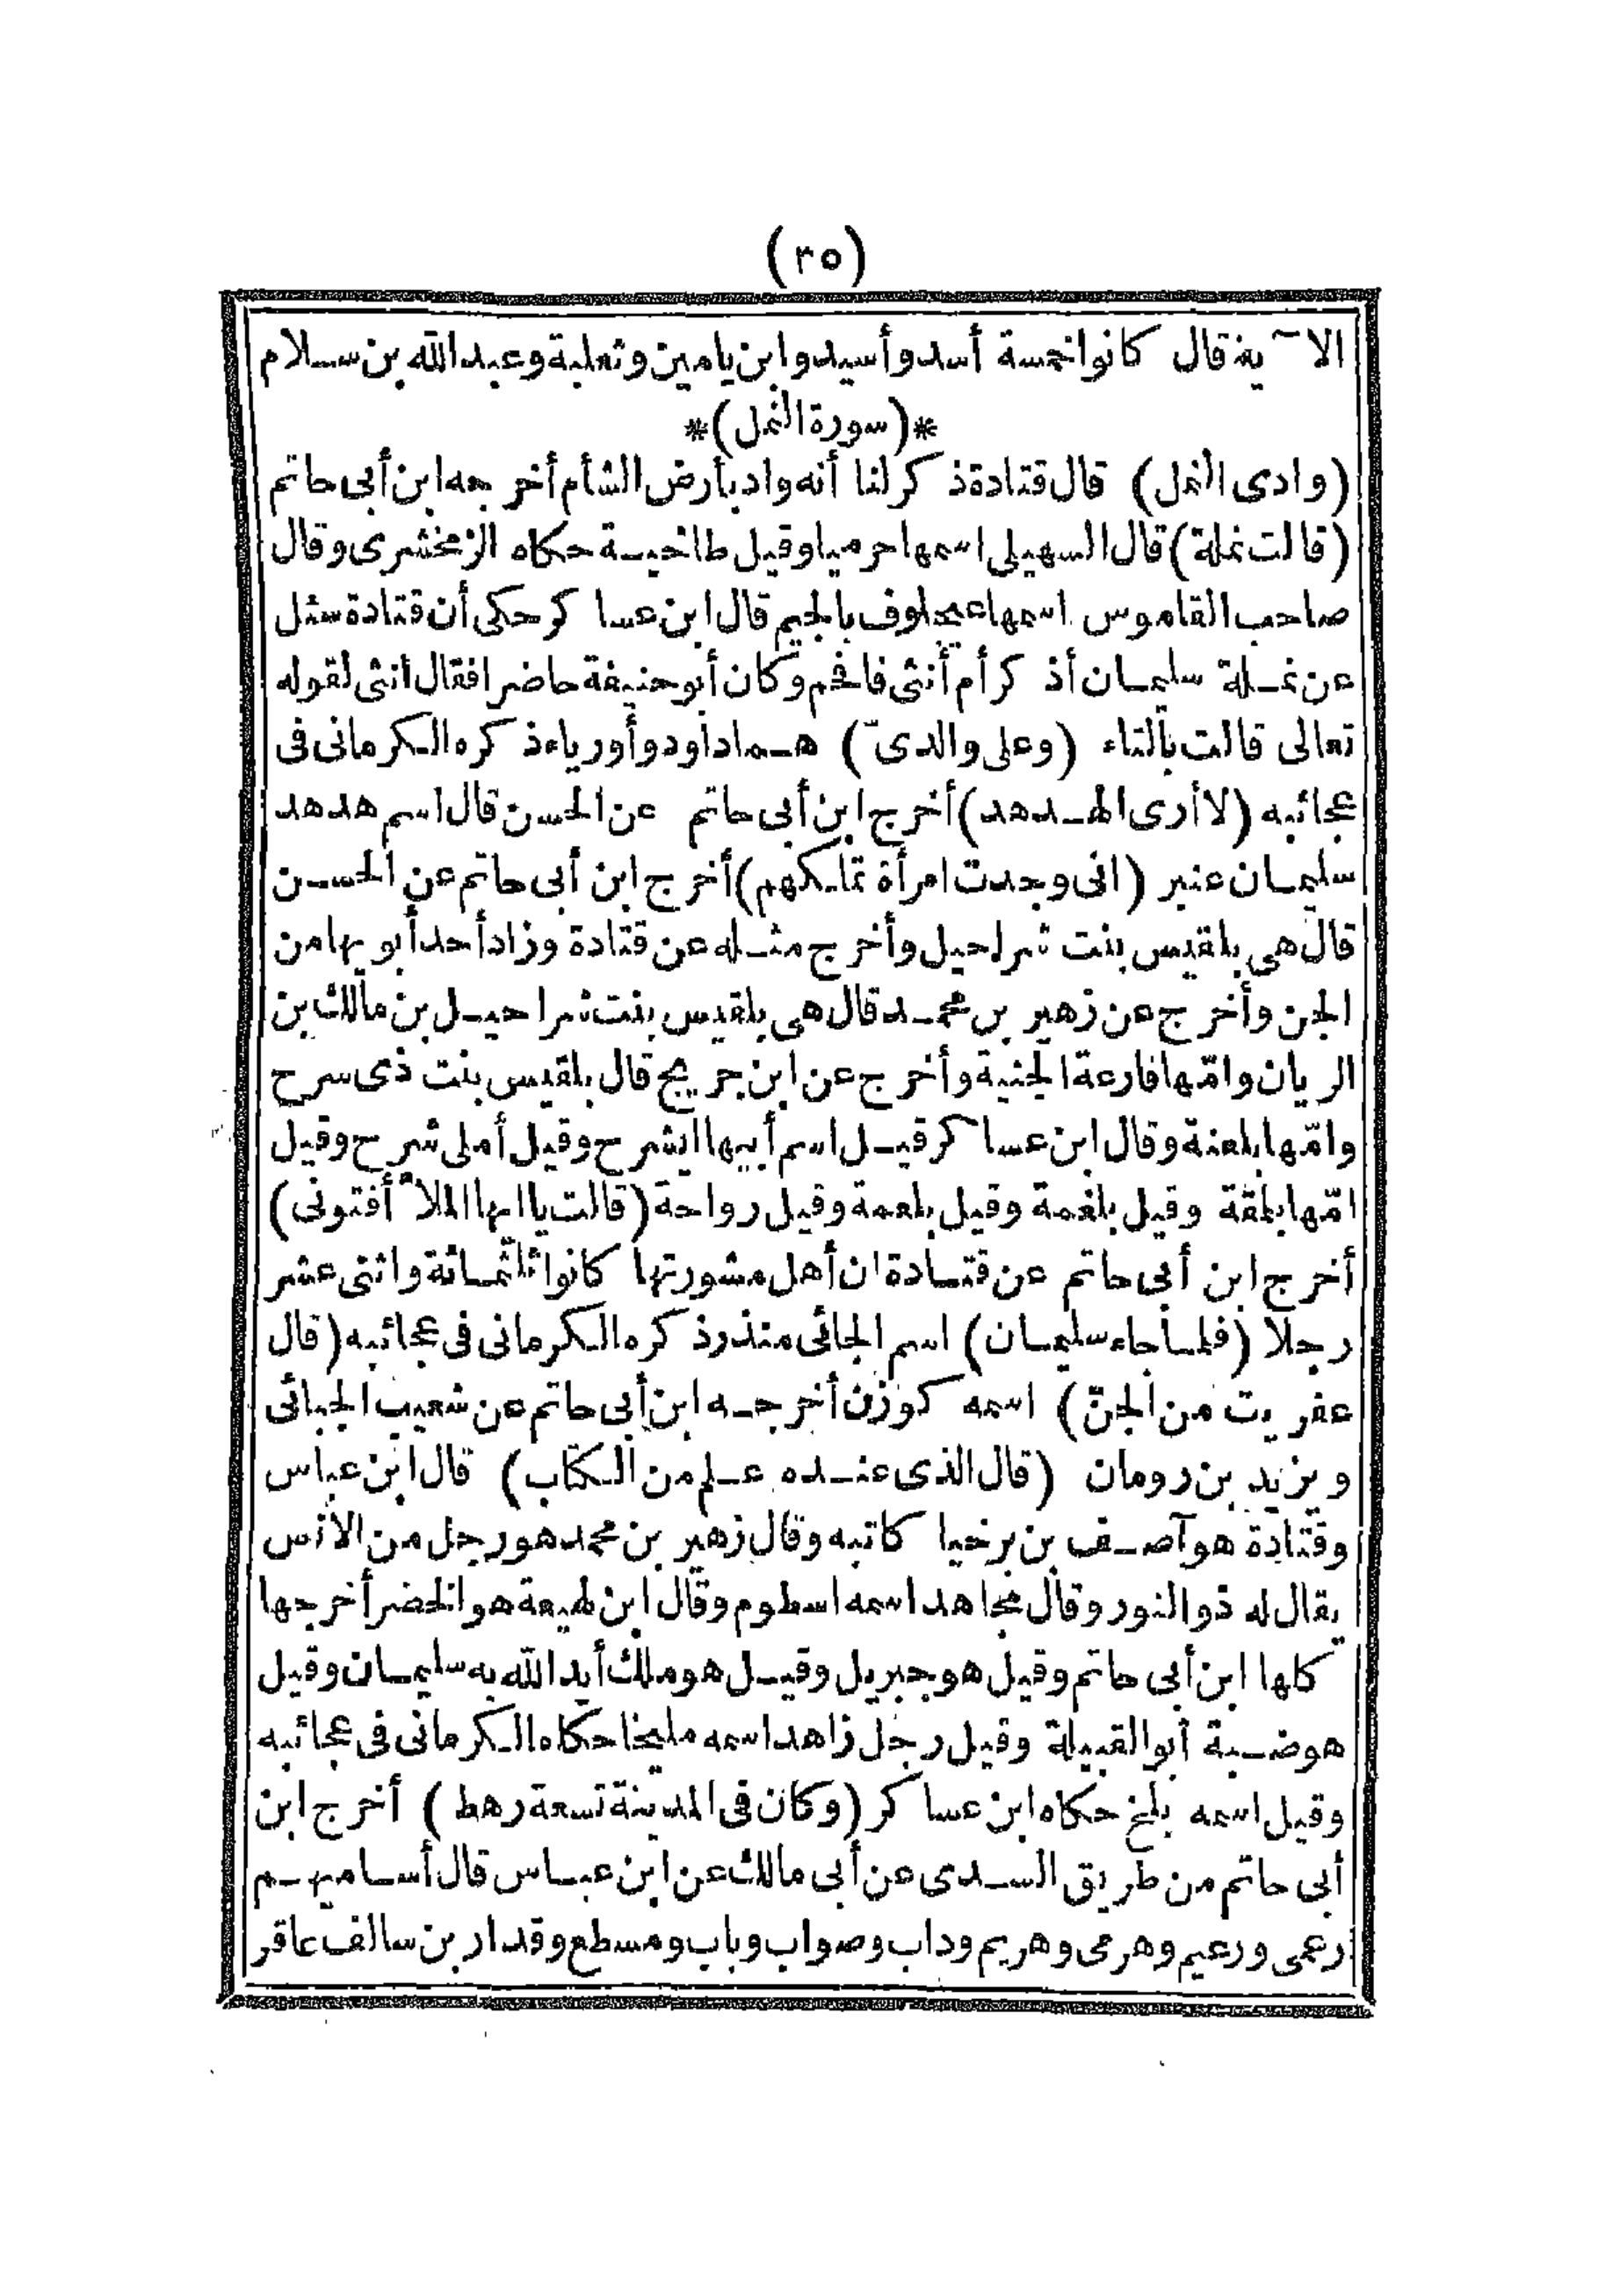 (٣٥)
الآية قال كانوا خمسة أسد وأسيد وابن يامين وثعلبة وعبد الله بن سلام
*(سورة النمل)*
(وادى النمل) قال قتادة ذكر لنا أنه واد بأرض الشأم أخرجه ابن أبى حاتم
(قالت نملة) قال السهيلى اسمها حرميا وقيل طاخية حكاه الزمخشرى وقال
صاحب القاموس اسمها عيجلوف بالجيم قال ابن عساكر حكى أن قتادة سئل
عن نملة سليمان أذكر أم أنثى فافحم وكان أبو حنيفة حاضرا فقال انثى لقوله
تعالى قالت بالتاء (وعلى والدىّ) هما داود وأورياء ذكره الكرمانى فى
عجائبه (لا أرى الهدهد) أخرج ابن أبى حاتم عن الحسن قال اسم هدهد
سليمان عنبر (انى وجدت امرأة تملكهم) أخرج ابن أبى حاتم عن الحسن
قال هى بلقيس بنت شراحيل وأخرج مثله عن قتادة وزاد أحد أبويها من
الجن وأخرج عن زهير بن محمد قال هى بلقيس بنت شراحيل بن مالك بن
الريان وامّها فارعة الجنية وأخرج عن ابن جريج قال بلقيس بنت ذى سرح
وامّها بلعنة وقال ابن عساكر قيل اسم أبيها ايشرح وقيل أملى شرح وقيل
امّها بلمقة وقيل بلغمة وقيل بلعمة وقيل رواحة (قالت يا ايها الملأ أفتونى)
أخرج ابن أبى حاتم عن قتادة ان أهل مشورتها كانوا ثلثمائة واثنى عشر
رجلا (فلما جاء سليمان) اسم الجائى منذر ذكره الكرمانى فى عجائبه (قال
عفريت من الجنّ) اسمه كوزن أخرجه ابن أبى حاتم عن شعيب الجبائى
ويزيد بن رومان (قال الذى عنده علم من الكتاب) قال ابن عباس
وقتادة هو آصف بن برخيا كاتبه وقال زهير بن محمد هو رجل من الانس
يقال له ذو النور وقال مجاهد اسمه اسطوم وقال ابن لهيعة هو الخضر أخرجها
كلها ابن أبى حاتم وقيل هو جبريل وقيل هو ملك أيد الله به سليمان وقيل
هو ضبة أبو القبيلة وقيل رجل زاهد اسمه مليخا حكاه الكرمانى فى عجائبه
وقيل اسمه بلخ حكاه ابن عساكر (وكان فى المدينة تسعة رهط) أخرج ابن
أبى حاتم من طريق السدى عن أبى مالك عن ابن عباس قال أساميهم
رعمى ورعيم وهرمى وهريم وداب وصواب وباب ومسطع وقدار بن سالف عاقر